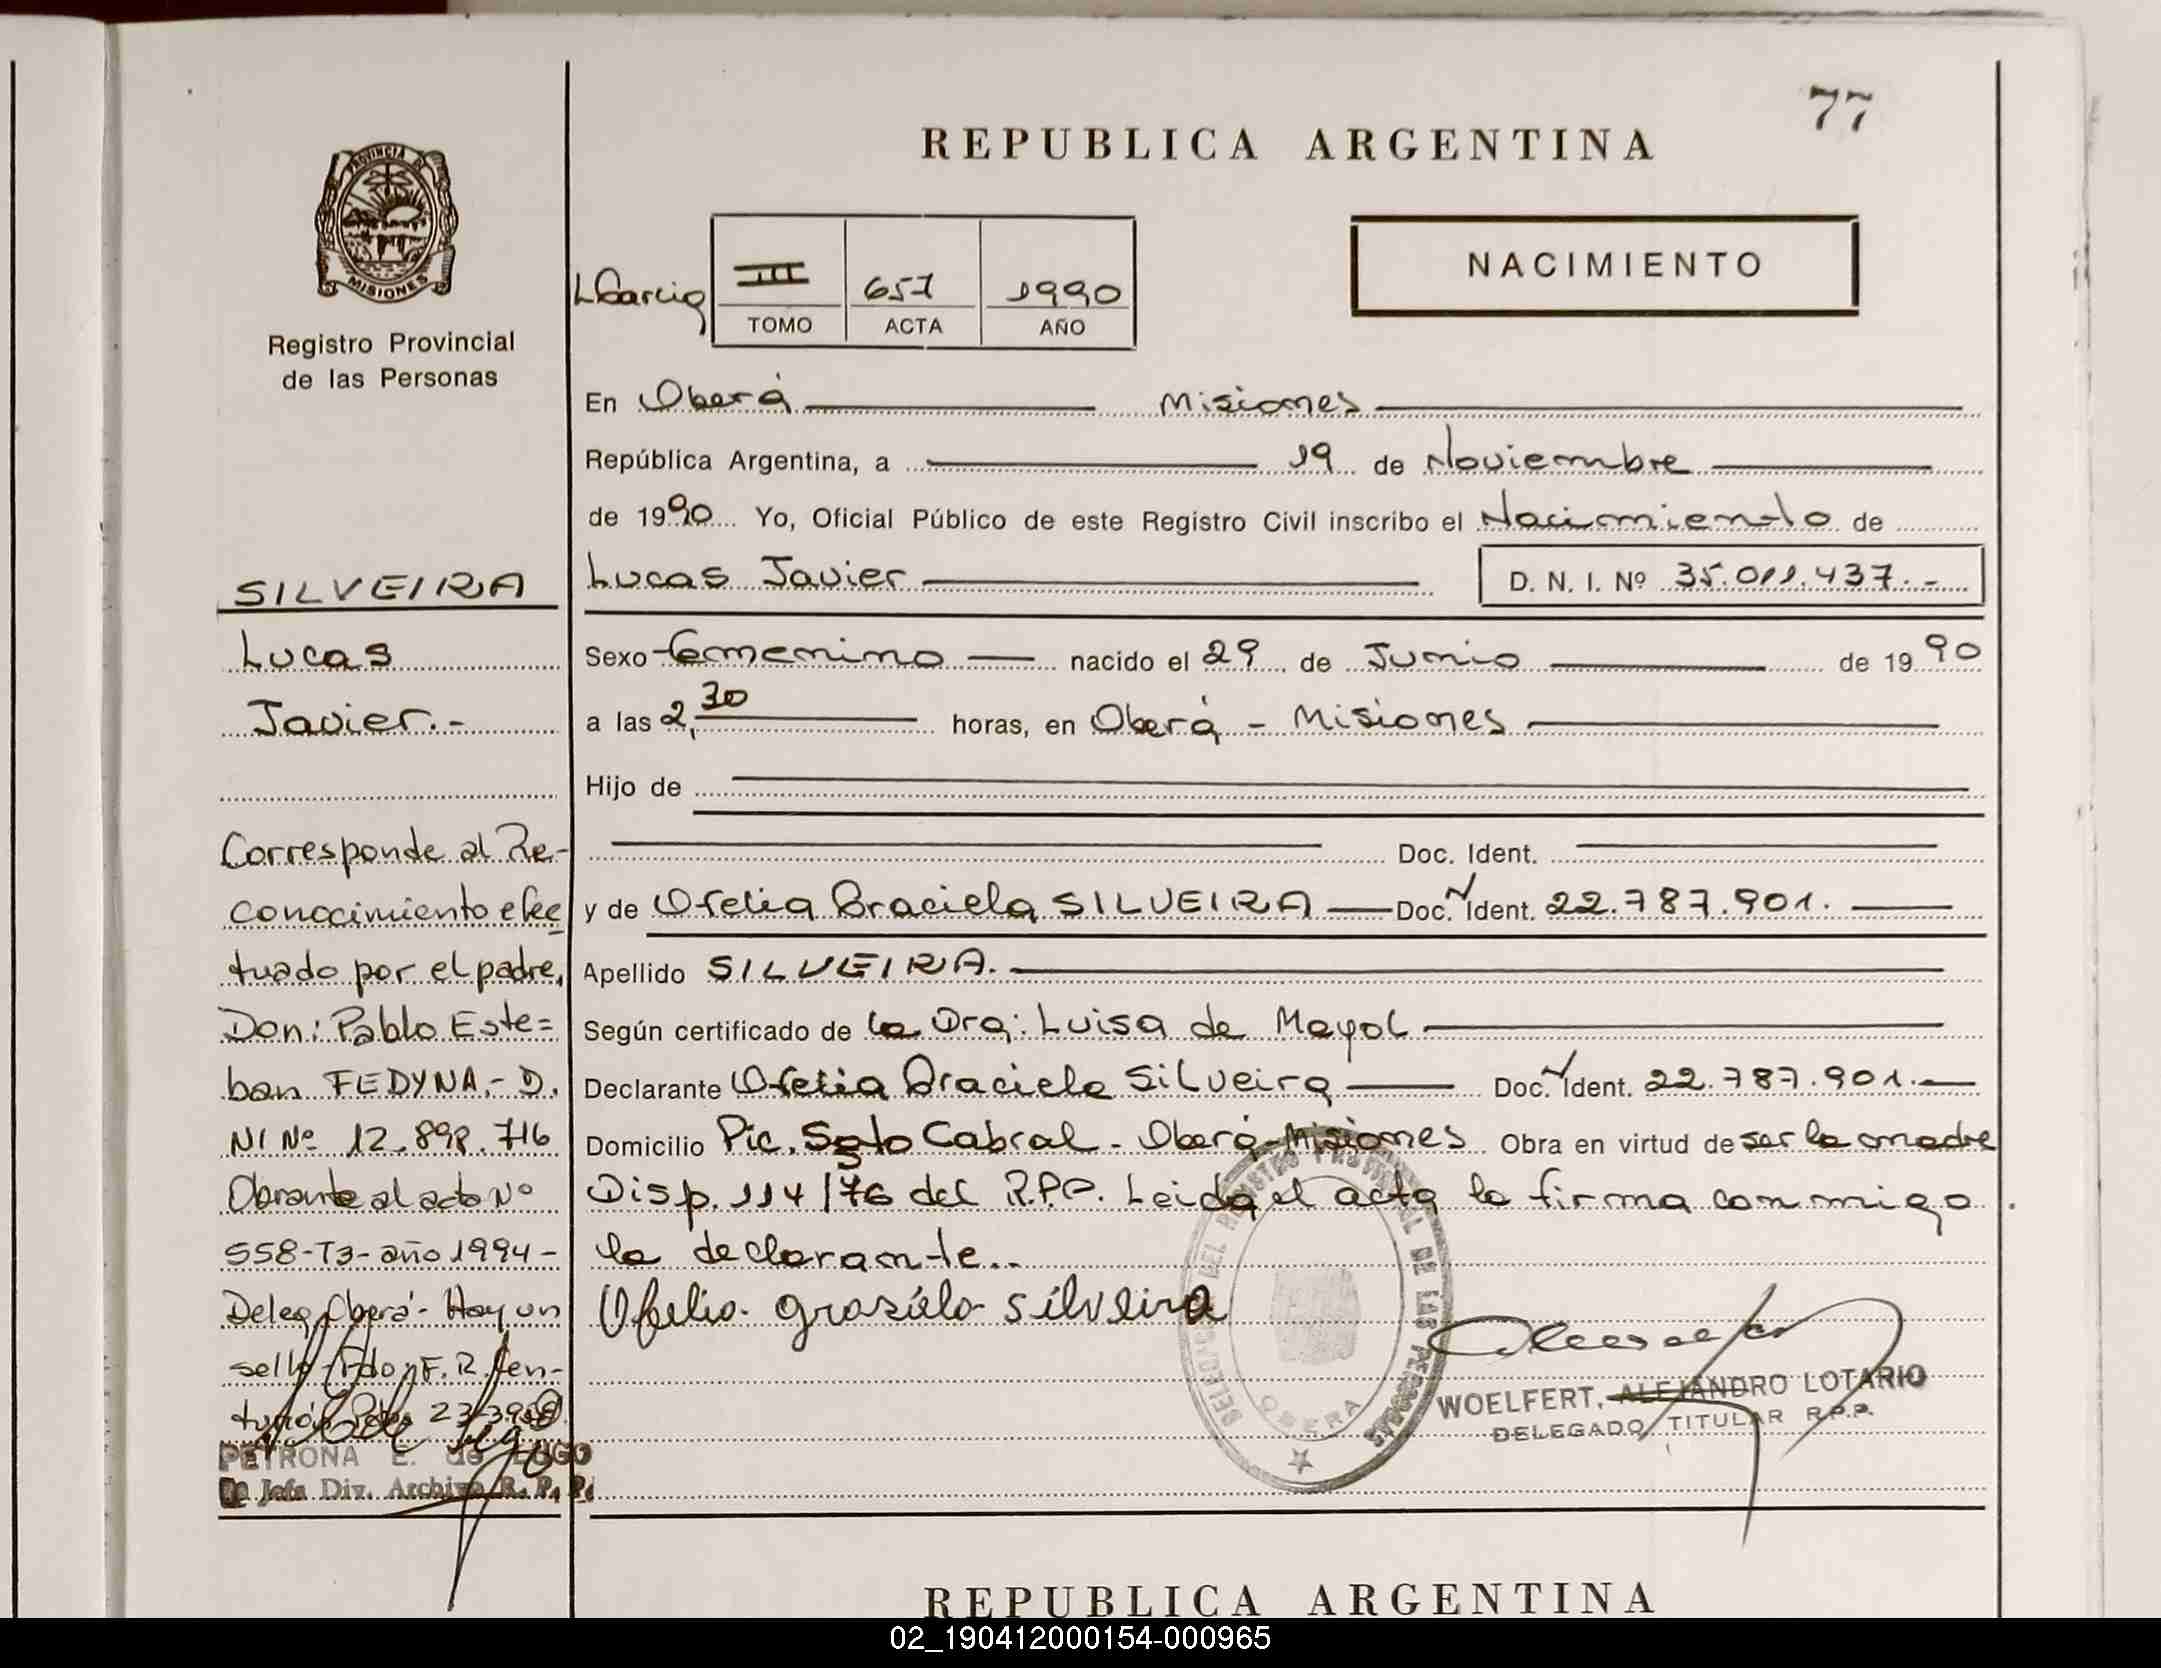 77
REPUBLICA ARGENTINA
PROVINCIA DE
MISIONES
Registro Provincial
de las Personas
NACIMIENTO
LGarcia
III 657 1990
TOMO ACTA AÑO
En Oberá Misiones
República Argentina, a 19 de Noviembre
de 1990 Yo, Oficial Público de este Registro Civil inscribo el Nacimiento de
Lucas Javier D. N. I. Nº 35.011.437.-
Sexo femenino nacido el 29 de Junio de 1990
a las 2,30 horas, en Oberá - Misiones
Hijo de
Doc. Ident.
y de Ofelia Graciela SILVEIRA Doc. Ident. 22.787.901.
Apellido SILVEIRA.
Según certificado de la Dra: Luisa de Mayol
Declarante Ofelia Graciela Silveira Doc. Ident. 22.787.901.-
Domicilio Pic. Sgto Cabral - Oberá - Misiones Obra en virtud de ser la madre
Disp. 114/76 del R.P.P. Leida el acta la firma conmigo
la declarante..
Ofelia graziela silveira
SILVEIRA
Lucas
Javier.-
Corresponde al Re-
conocimiento efec
tuado por el padre,
Don: Pablo Este=
ban FEDYNA.- D.
NI Nº 12.898.716
Obrante al acta Nº
558-T3-año 1994-
Deleg Oberá - Hay un
sello - Fdo: F. R.
PETRONA E. de LUGO
Jefa Div. Archivo R. P. P.
DEL REGISTRO PROVINCIAL DE LAS PERSONAS
OBERA
WOELFERT, ALEJANDRO LOTARIO
DELEGADO TITULAR R.P.P.
REPUBLICA ARGENTINA
02_190412000154-000965